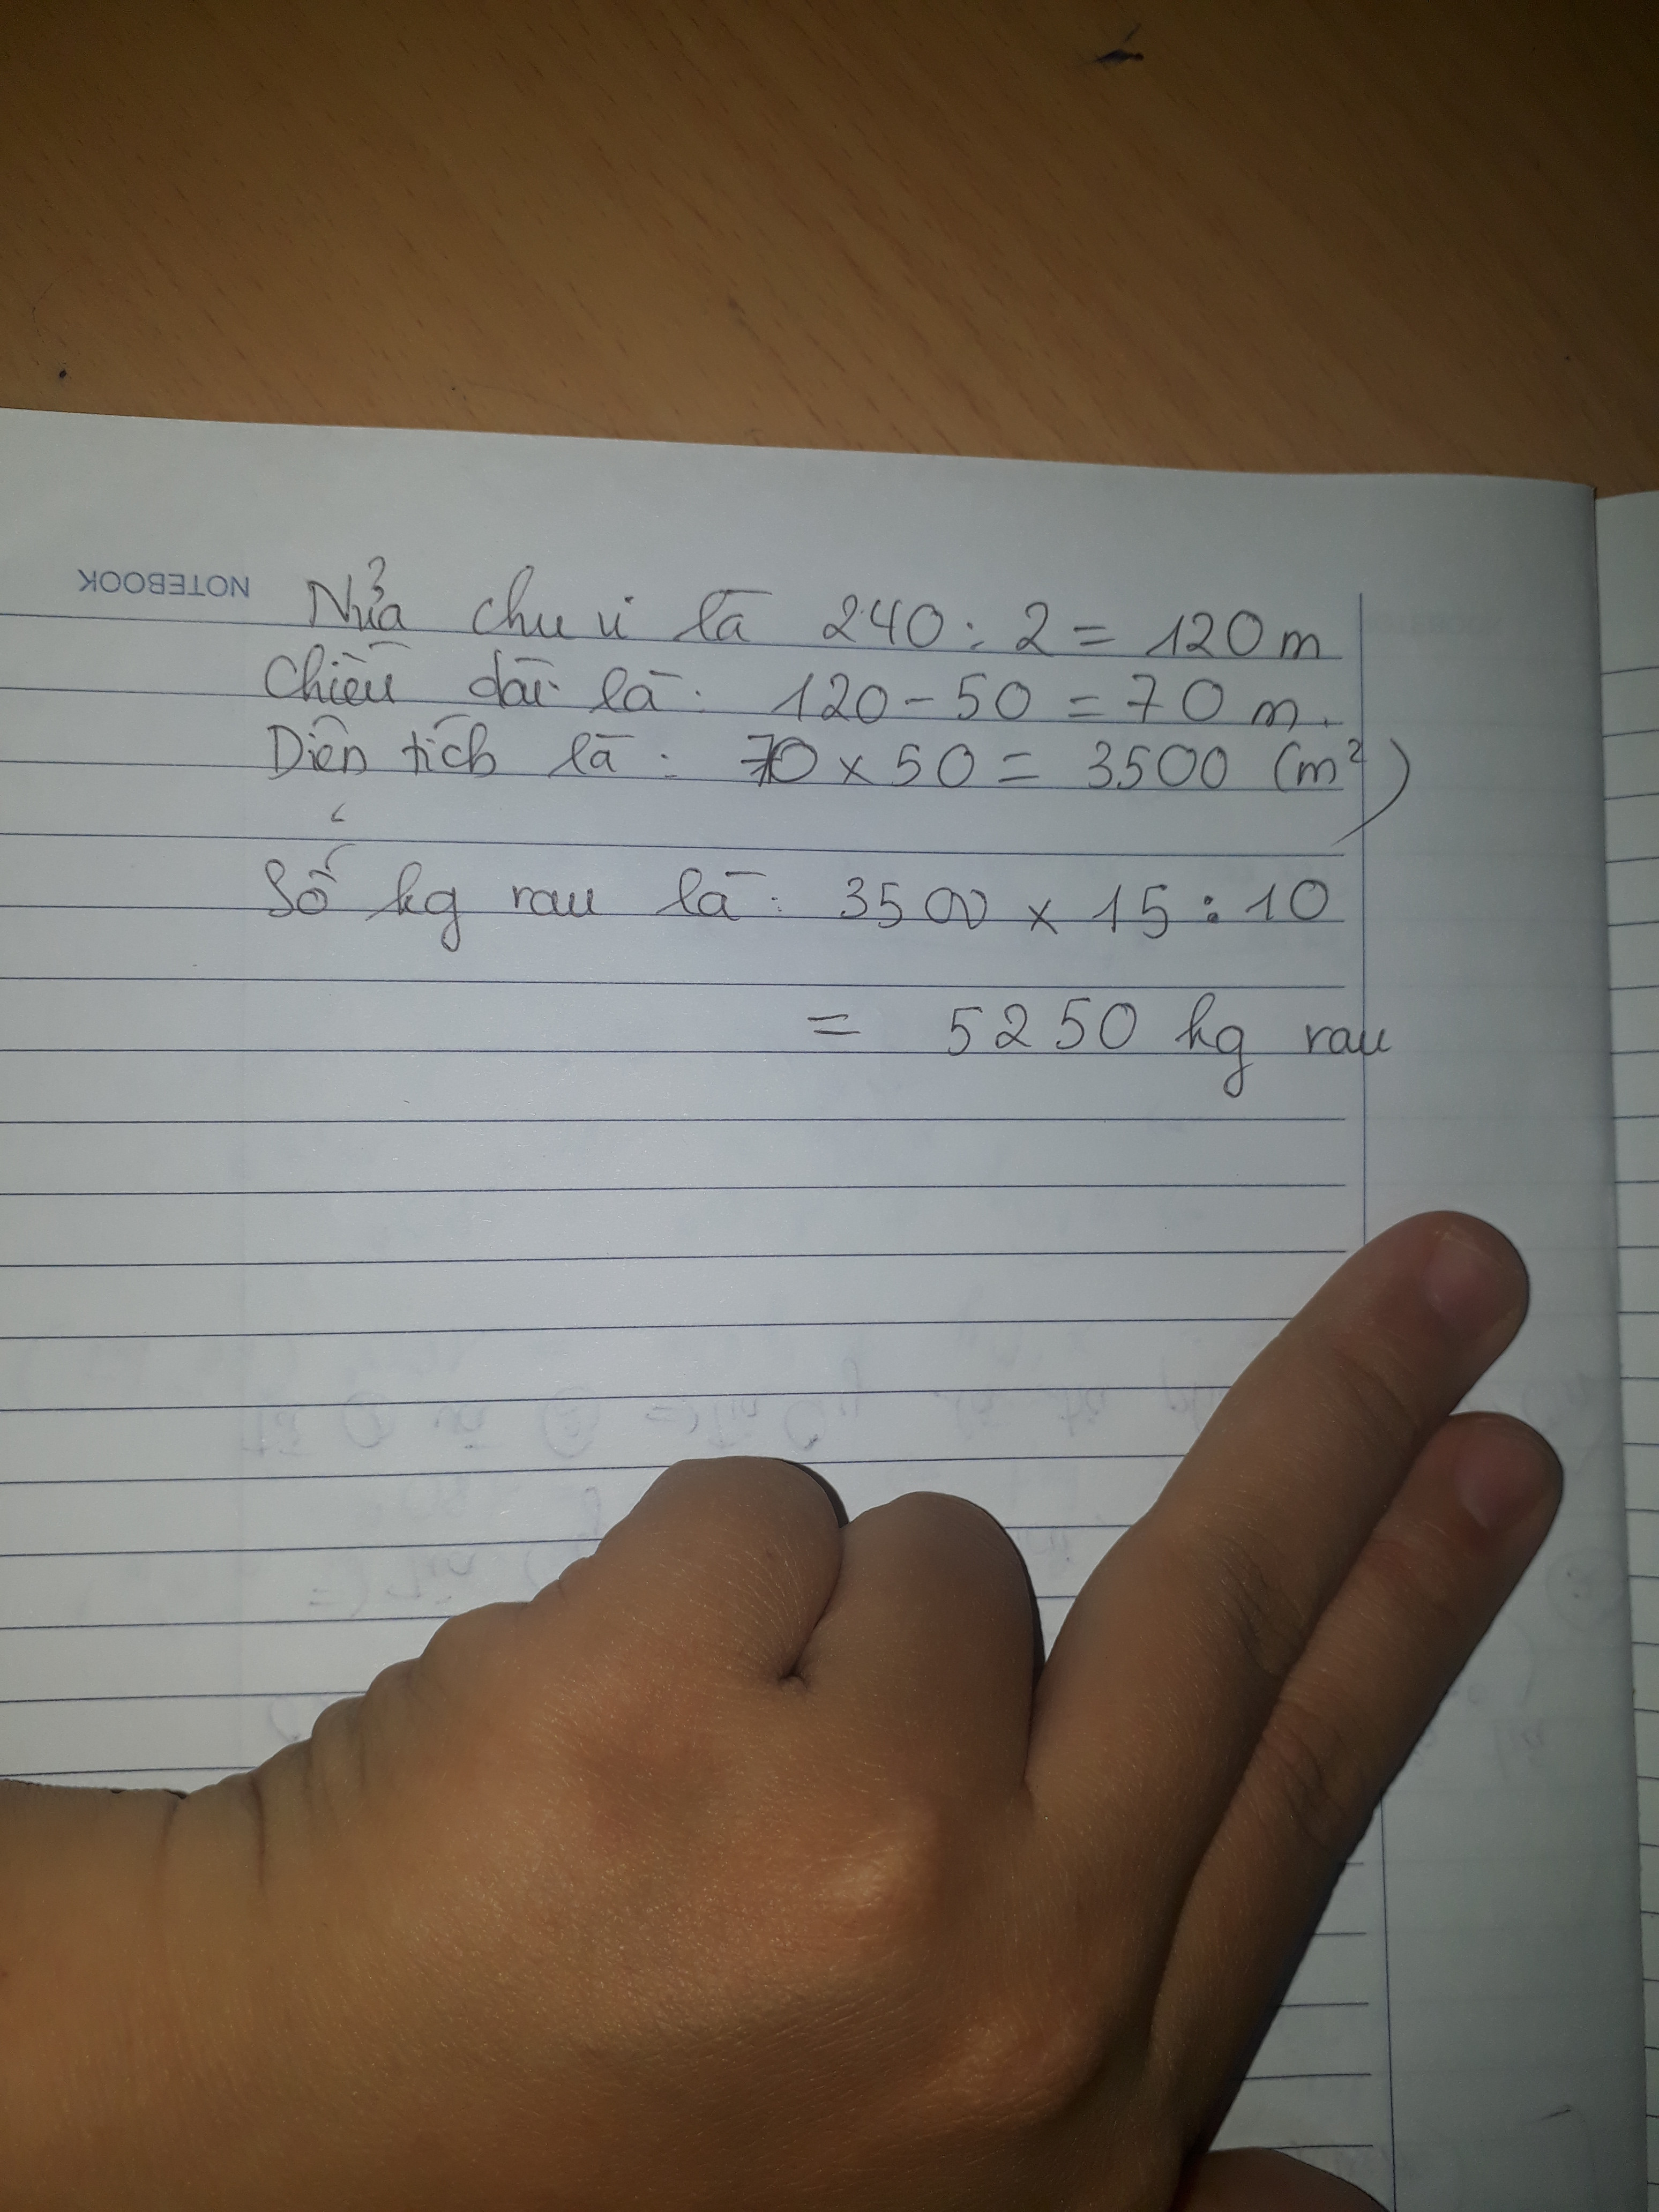 NOTEBOOK
Nửa chu vi là 240 : 2 = 120 m
Chiều dài là : 120 - 50 = 70 m.
Diện tích là : 70 x 50 = 3500 (m²)
Số kg rau là : 3500 x 15 : 10
= 5250 kg rau